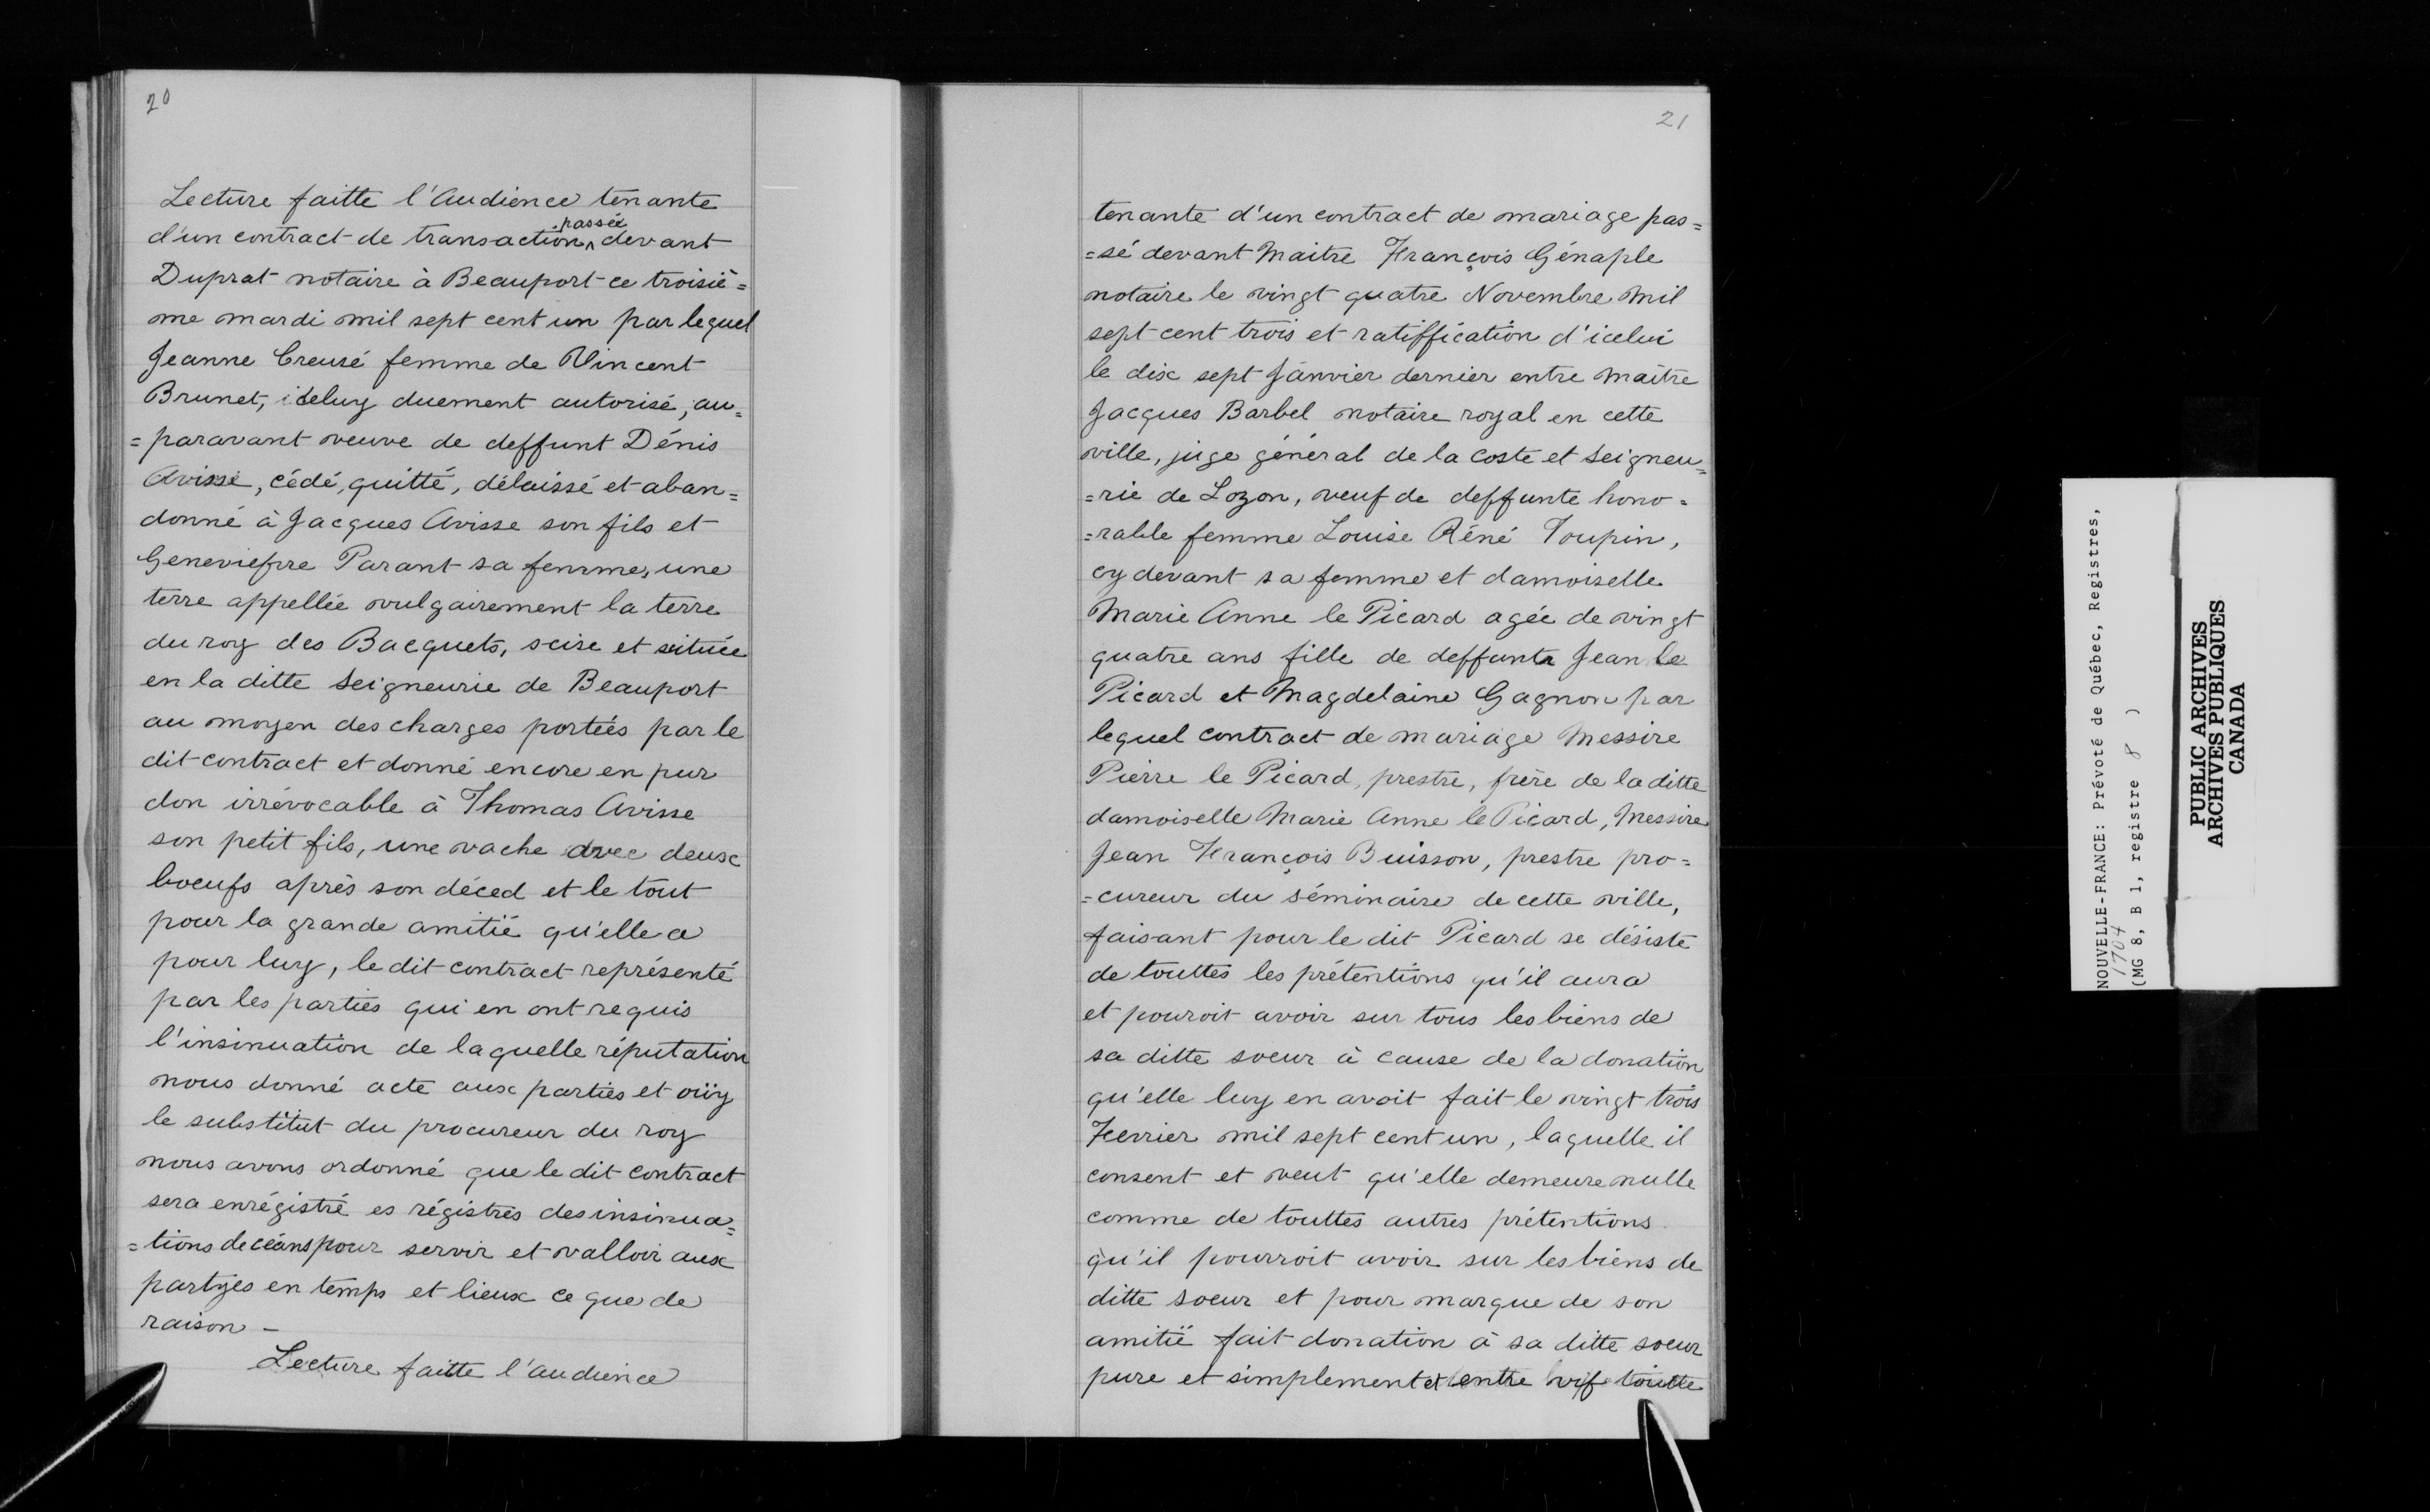 20
Lecture faitte l'Audience tenante
d'un contract de transaction passée devant
Duprat notaire à Beauport ce troisiè=
me mardi mil sept cent un par lequel
Jeanne Creusé femme de Vincent
Brunet, iceluy duement autorisé, au=
=paravant veuve de deffunt Dénis
Avisse, cédé, quitté, délaissé et aban=
donné à Jacques Avisse son fils et
Geneviefve Parant sa femme, une
terre appellée vulgairement la terre
du roy des Bacquets, scise et scituée
en la ditte Seigneurie de Beauport
au moyen des charges portées par le
dit contract et donné encore en pur
don irrévocable à Thomas Avisse
son petit fils, une vache avec deux
boeufs après son déced et le tout
pour la grande amitié qu'elle a
pour luy, le dit contract représenté
par les parties qui en ont requis
l'insinuation de laquelle réputation
nous donné acte aux parties et oüy
le substitut du procureur du roy
nous avons ordonné que le dit contract
sera enrégistré es régistres des insinua=
=tions de céans pour servir et valloir aux
partyes en temps et lieux ce que de
raison –
Lecture faitte l'audience
21
tenante d'un contract de mariage pas=
=sé devant Maitre François Génaple
notaire le vingt quatre Novembre mil
sept cent trois et ratiffication d'icelui
le dix sept Janvier dernier entre Maître
Jacques Barbel notaire royal en cette
ville, juge général de la coste et seigneu=
=rie de Lozon, veuf de deffunte hono=
=rable femme Louise Réné Toupin,
cy devant sa femme et damoiselle
Marie Anne le Picard agée de vingt
quatre ans fille de deffunts Jean le
Picard et Magdelaine Gagnon par
lequel contract de mariage Messire
Pierre le Picard, prestre, frère de la ditte
damoiselle Marie Anne le Picard, Messire
Jean François Buisson, prestre pro=
=cureur du séminaire de cette ville,
faisant pour le dit Picard se désiste
de touttes les prétentions qu'il aura
et pouroit avoir sur tous les biens de
sa ditte soeur à cause de la donation
qu'elle luy en avoit fait le vingt trois
Fevrier mil sept cent un, laquelle il
consent et veut qu'elle demeure nulle
comme de touttes autres prétentions
qu'il pourroit avoir sur les biens de
ditte soeur et pour marque de son
amitié fait donation à sa ditte soeur
pure et simplement et entre vif toutte
NOUVELLE-FRANCE: Prévoté de Québec, Registres,
1704
(MG 8, B 1, registre 8 )
PUBLIC ARCHIVES
ARCHIVES PUBLIQUES
CANADA